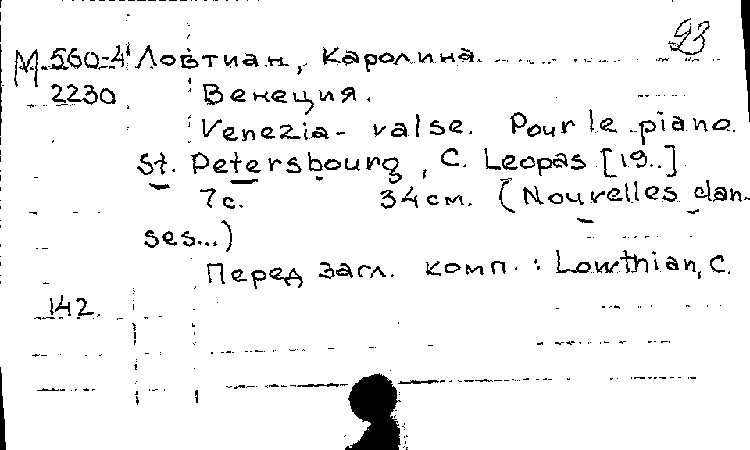 93
М 560-4 Ловтиан, Каролина
2230 Венеция.
Venezia- valse. Pour le piano.
St. Petersbourg, C. Leopas [19..]
7с. 34см. (Nouvelles dan-
ses...)
Перед загл. комп.: Lowthian, C.
142.